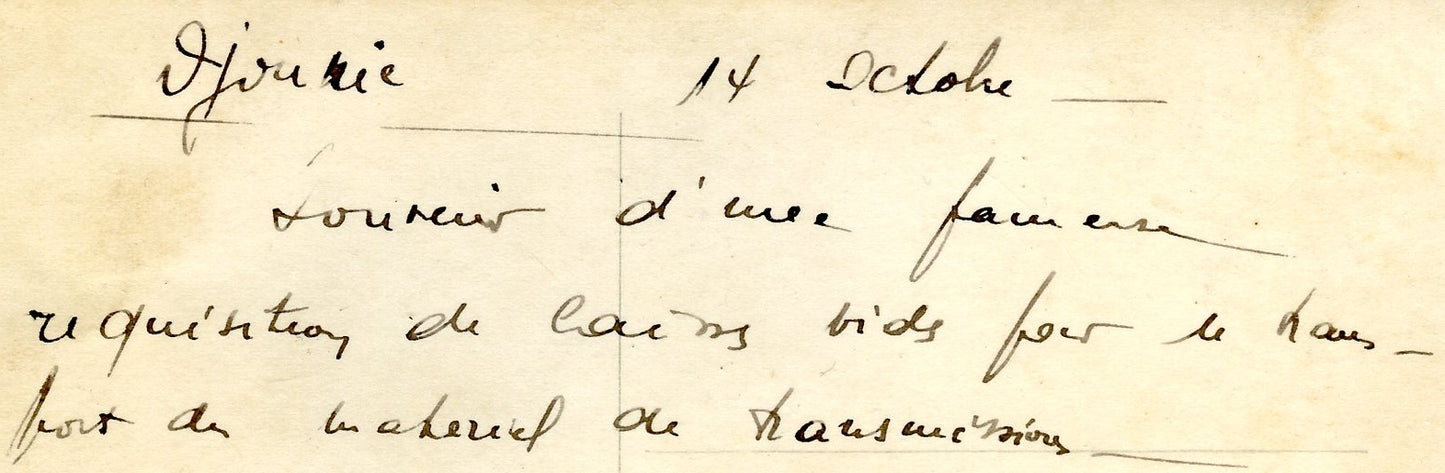 Djounie 14 Octobre
Souvenir d'une fameuse
requisition de caisses vides pour le trans-
port du materiel de transmissions